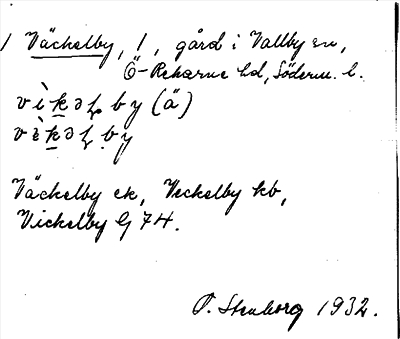 1 Väckelby, 1, gård i Vallby sn,
Ö-Rekarne hd, Söderm. l.
vìkəɭ by (ä)
vèkəɭ by
Väckelby ek, Veckelby kb,
Vickelby G 74.
O. Stenborg 1932.